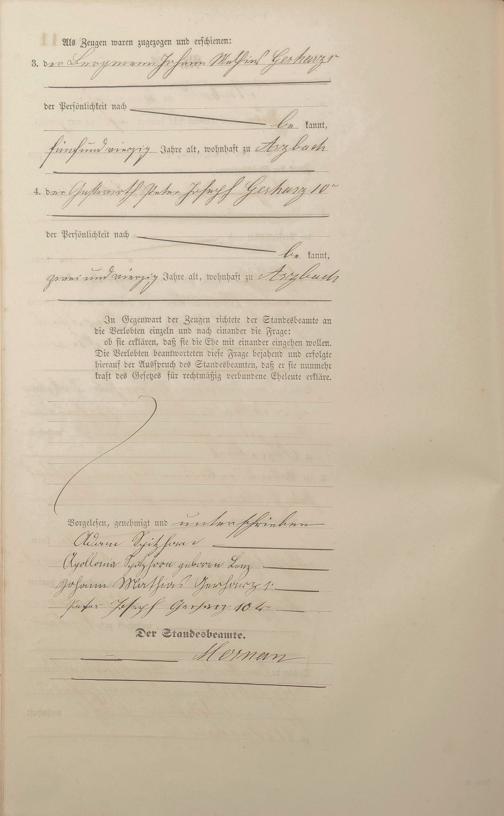 Als Zeugen waren zugezogen und erschienen:
3. der Bergmann Johann Mathias Gerharz
der Persönlichkeit nach
be kannt,
fünfundvierzig Jahre alt, wohnhaft zu Arzbach
4. der Gastwirth Peter Joseph Gerharz 10r
der Persönlichkeit nach
be kannt,
zwei und vierzig Jahre alt, wohnhaft zu Arzbach
In Gegenwart der Zeugen richtete der Standesbeamte an
die Verlobten einzeln und nach einander die Frage:
ob sie erklären, daß sie die Ehe mit einander eingehen wollen.
Die Verlobten beantworteten diese Frage bejahend und erfolgte
hierauf der Ausspruch des Standesbeamten, daß er sie nunmehr
kraft des Gesetzes für rechtmäßig verbundene Eheleute erkläre.
Vorgelesen, genehmigt und unterschrieben
Adam Spitzhorn
Apollonia Spitzhorn geborene Lenz
Johann Mathias Gerharz
Peter Joseph Gerharz 10ter
Der Standesbeamte.